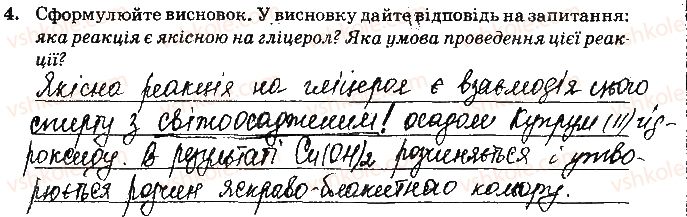 4. Сформулюйте висновок. У висновку дайте відповідь на запитання:
яка реакція є якісною на гліцерол? Яка умова проведення цієї реак-
ції?
Якісна реакція на гліцерол є взаємодія цього
спирту з світоосадженим! осадом Купрум (II) гід-
роксиду. В результаті Cu(OH)2 розчиняється і утво-
рюється розчин яскраво-блакитного кольору.